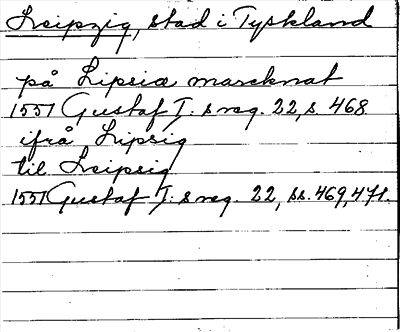 Leipzig, stad i Tyskland
på Lipsiæ marcknat
1551 Gustaf I:s reg. 22, s. 468.
ifrå Lipsig
til Leipsig
1551 Gustaf I:s reg. 22, ss. 469, 471.